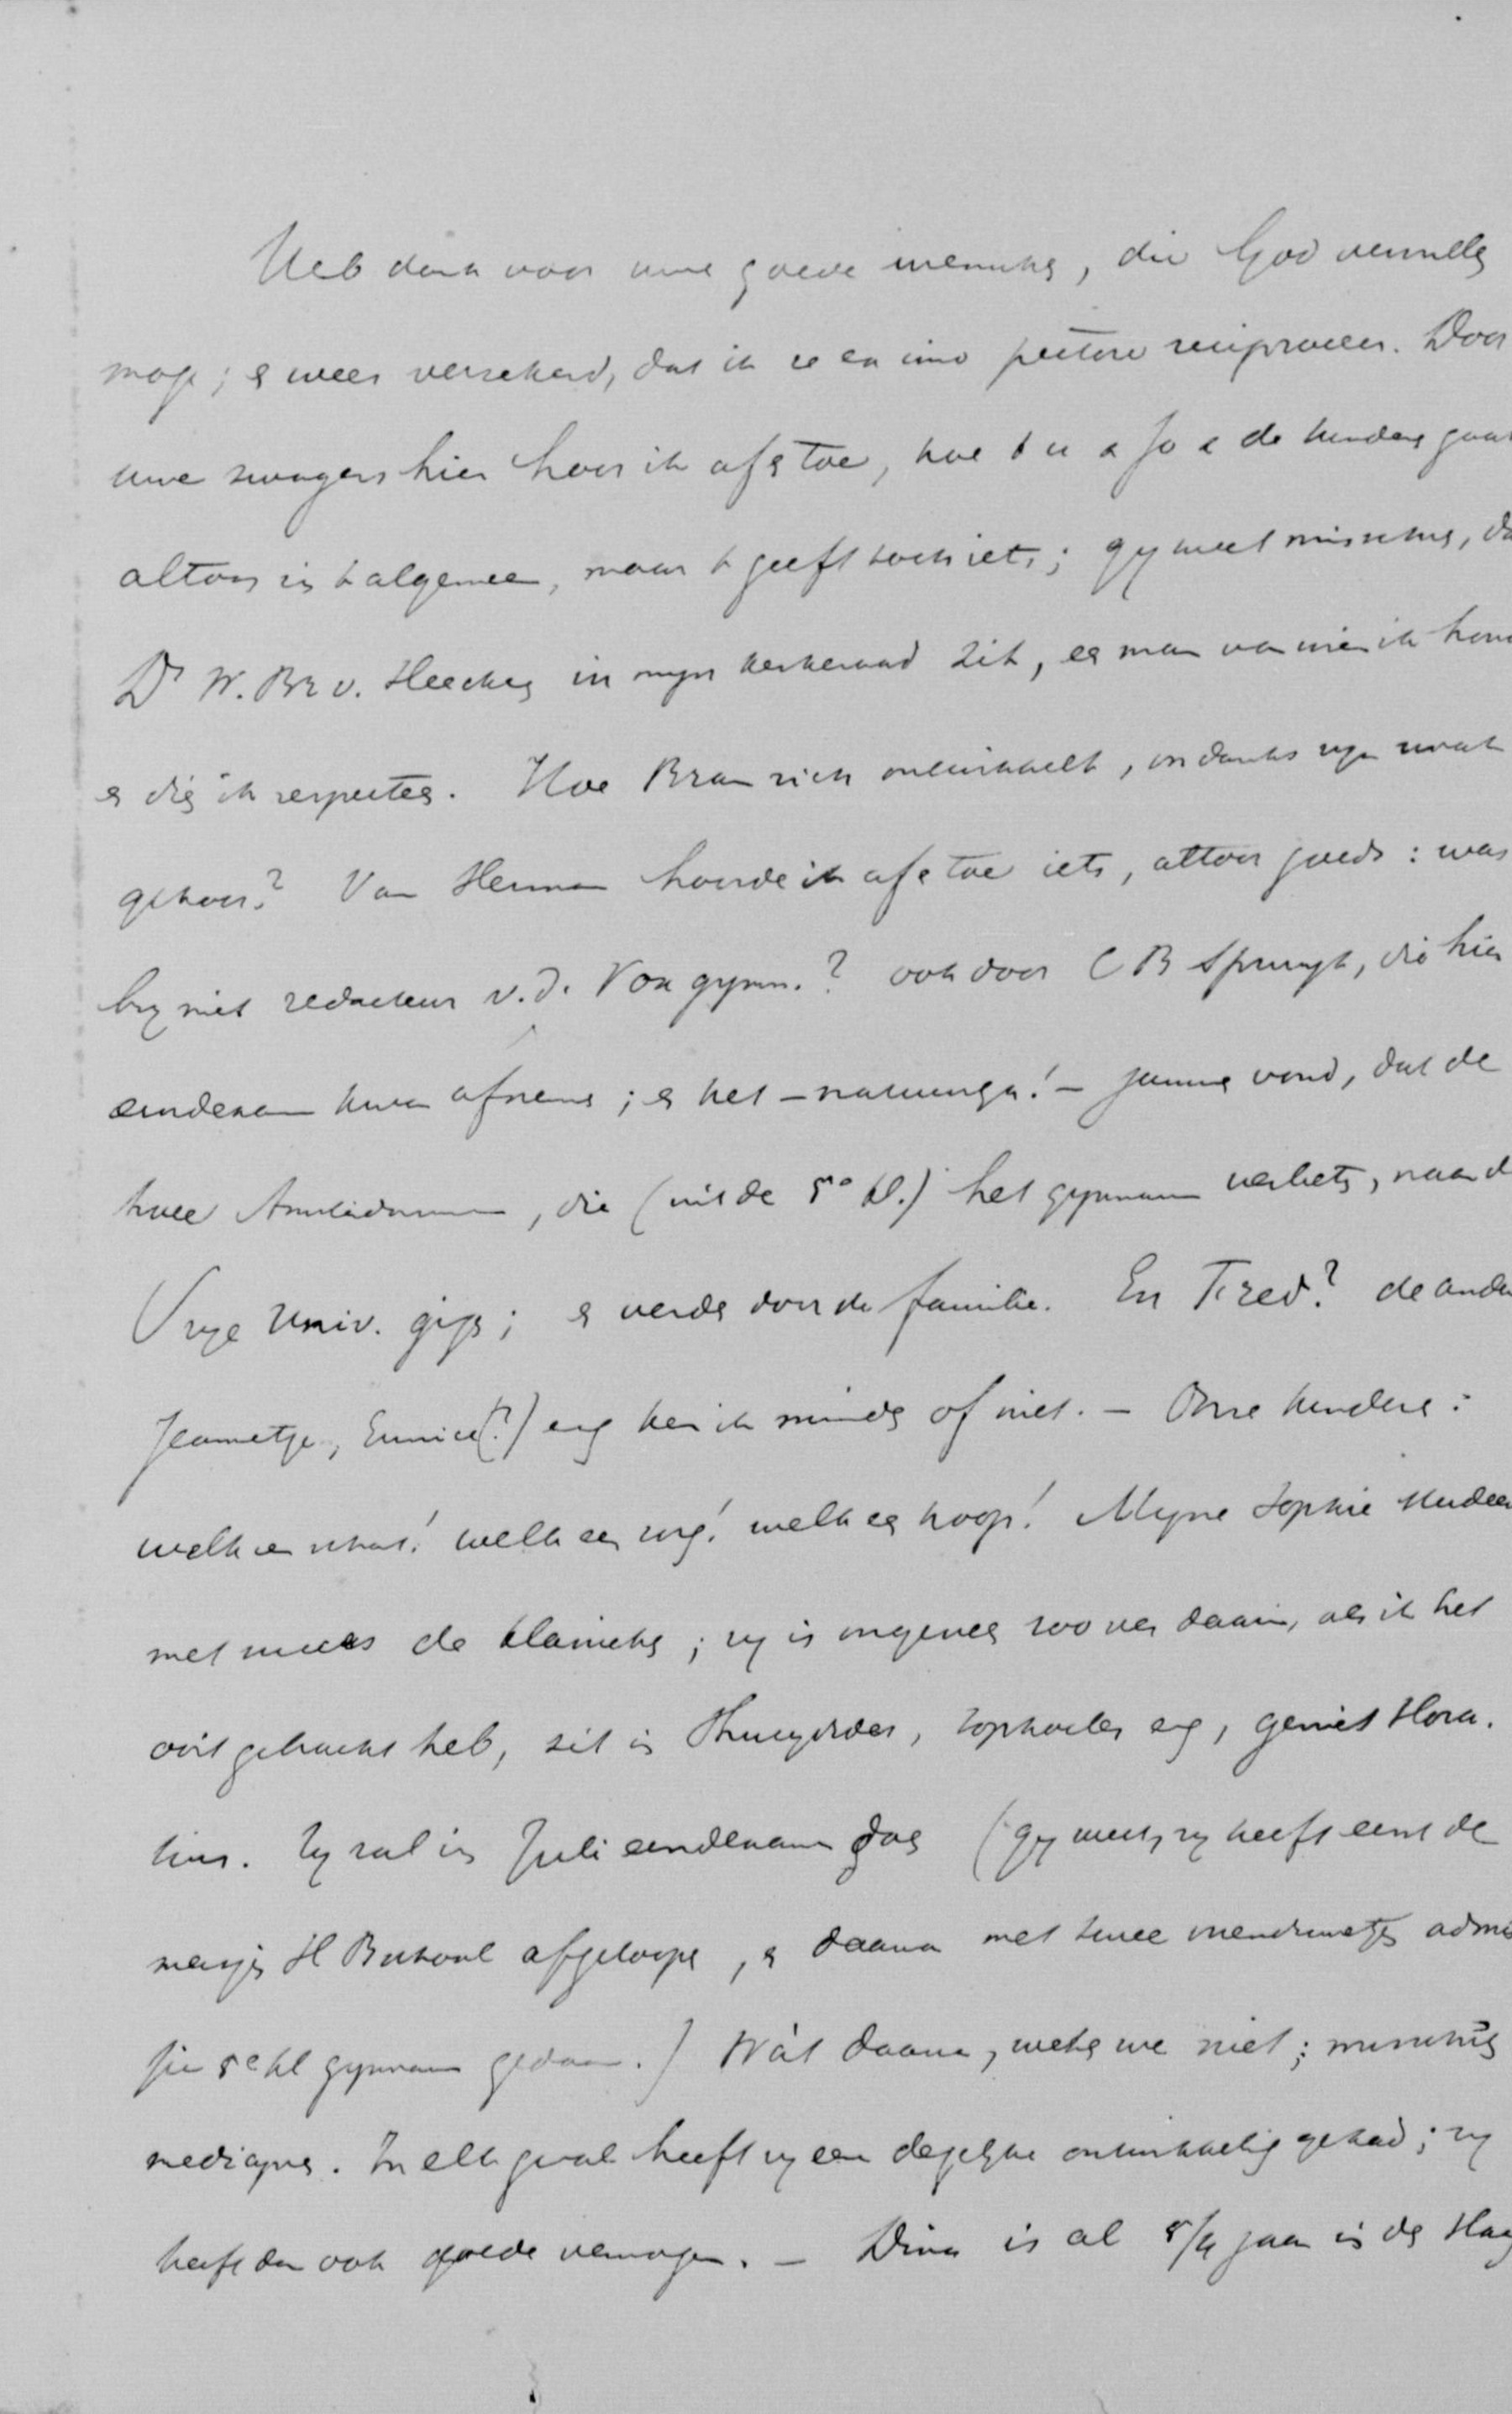 Heb dank voor uwe goede wensche, die God vervulle
moge; e wees verzekerd, dat ik ze ex imo pectore reciproceer. Door
uwe zwagers hier hoor ik af e toe, hoe 't u e Jo e de kinders gaat
altoos in 't algemeen, maar 't geeft toch iets; gy weet misschien, da
Dr W. Br v. Heecker in myn kerkeraad zit, een man van wien ik hou
e dien ik respecteer. Hoe Bram zich ontwikkelt, ondanks zyn zwak
gehoor? Van Herman hoorde ik af e toe iets, altoos goeds: was
hy niet redacteur v. d. Vox gymn.? ook door C B Spruyt, die hier
eindexam kwam afneme; e het – natuurlyk! – jamme vond, dat de
twee Amsterdammers, die (uit de 5e kl.) het gymnasium verliete, naar d
Vrye Univ. ginge; e verde door de familie. En Fred? de ande
Jeannetje, Eunice(?) enz ken ik minde of niet. – Onze kindere:
welk een schat! welk een zorg! welk een hoop! Myne Sophie studee
met succes de klassieke; zy is ongevee zoo ver daarin, als ik het
ooit gebracht heb, zit in Thucydides, Sophocles enz, geniet Hora-
tius. Zy zal in Juli eindexamen doe (gy weet, zy heeft eerst de
meisjes H Burschool afgeloope, e daarna met twee vriendinnetjes admis
sie 5e kl gymnasium gedaan.) Wàt daarna, wete we niet; misschien
medicyne. In elk geval heeft zy een degelyke ontwikkelig gehad; zy
heeft dan ook goede vermogens. – Dina is al 5/4 jaar in de Haag